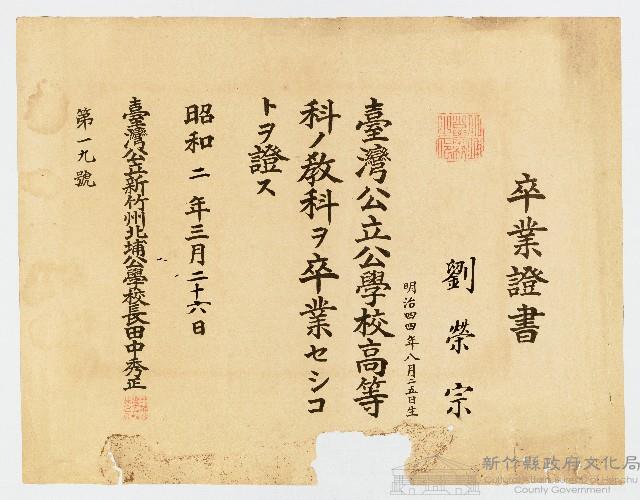 卒業證書
劉榮宗
明治四四年八月二五日生
臺灣公立公學校高等
科ノ教科ヲ卒業セシコ
トヲ證ス
昭和二年三月二十六日
臺灣公立新竹州北埔公學校長田中秀正
第一九號
新竹縣政府文化局
Cultural Affairs Bureau of Hsinchu
County Government